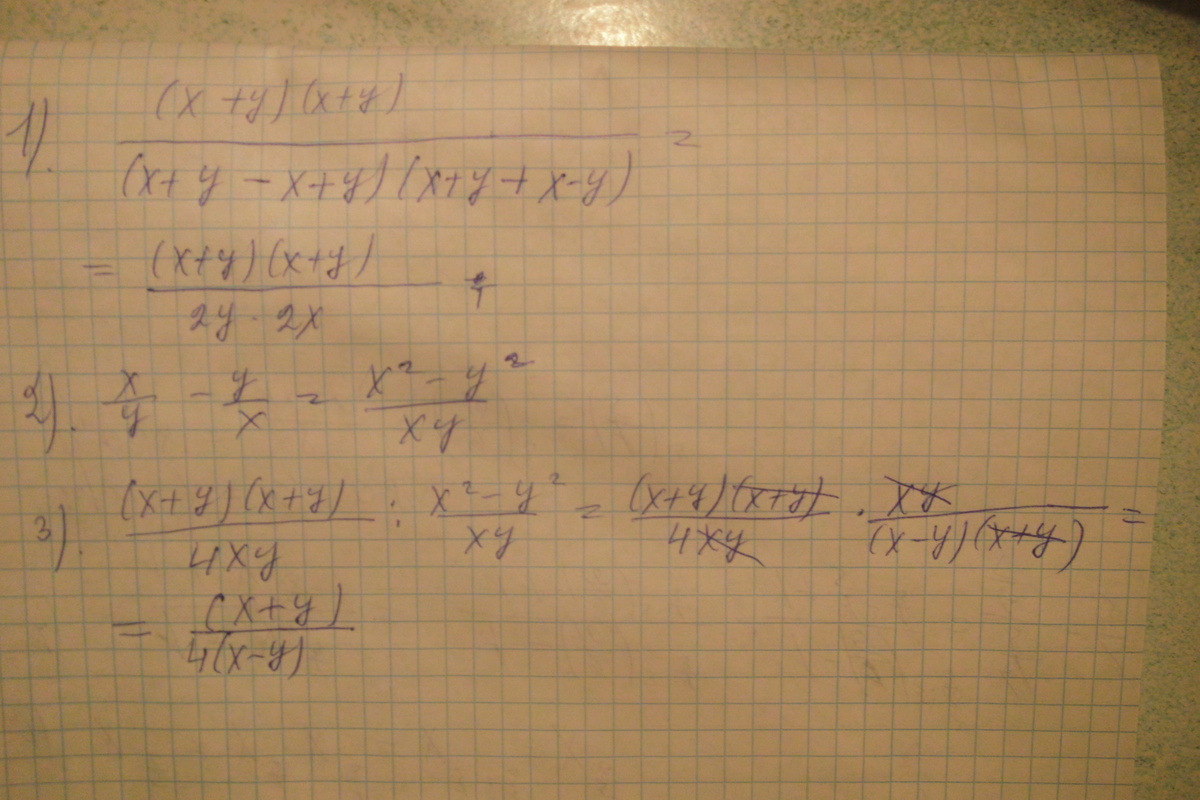 1). (x+y)(x+y) / (x+y-x+y)(x+y+x-y) =
= (x+y)(x+y) / 2y·2x ;
2). x/y - y/x = x² - y² / xy
3). (x+y)(x+y) / 4xy : x² - y² / xy = (x+y)(x+y) / 4xy · xy / (x-y)(x+y) =
= (x+y) / 4(x-y)